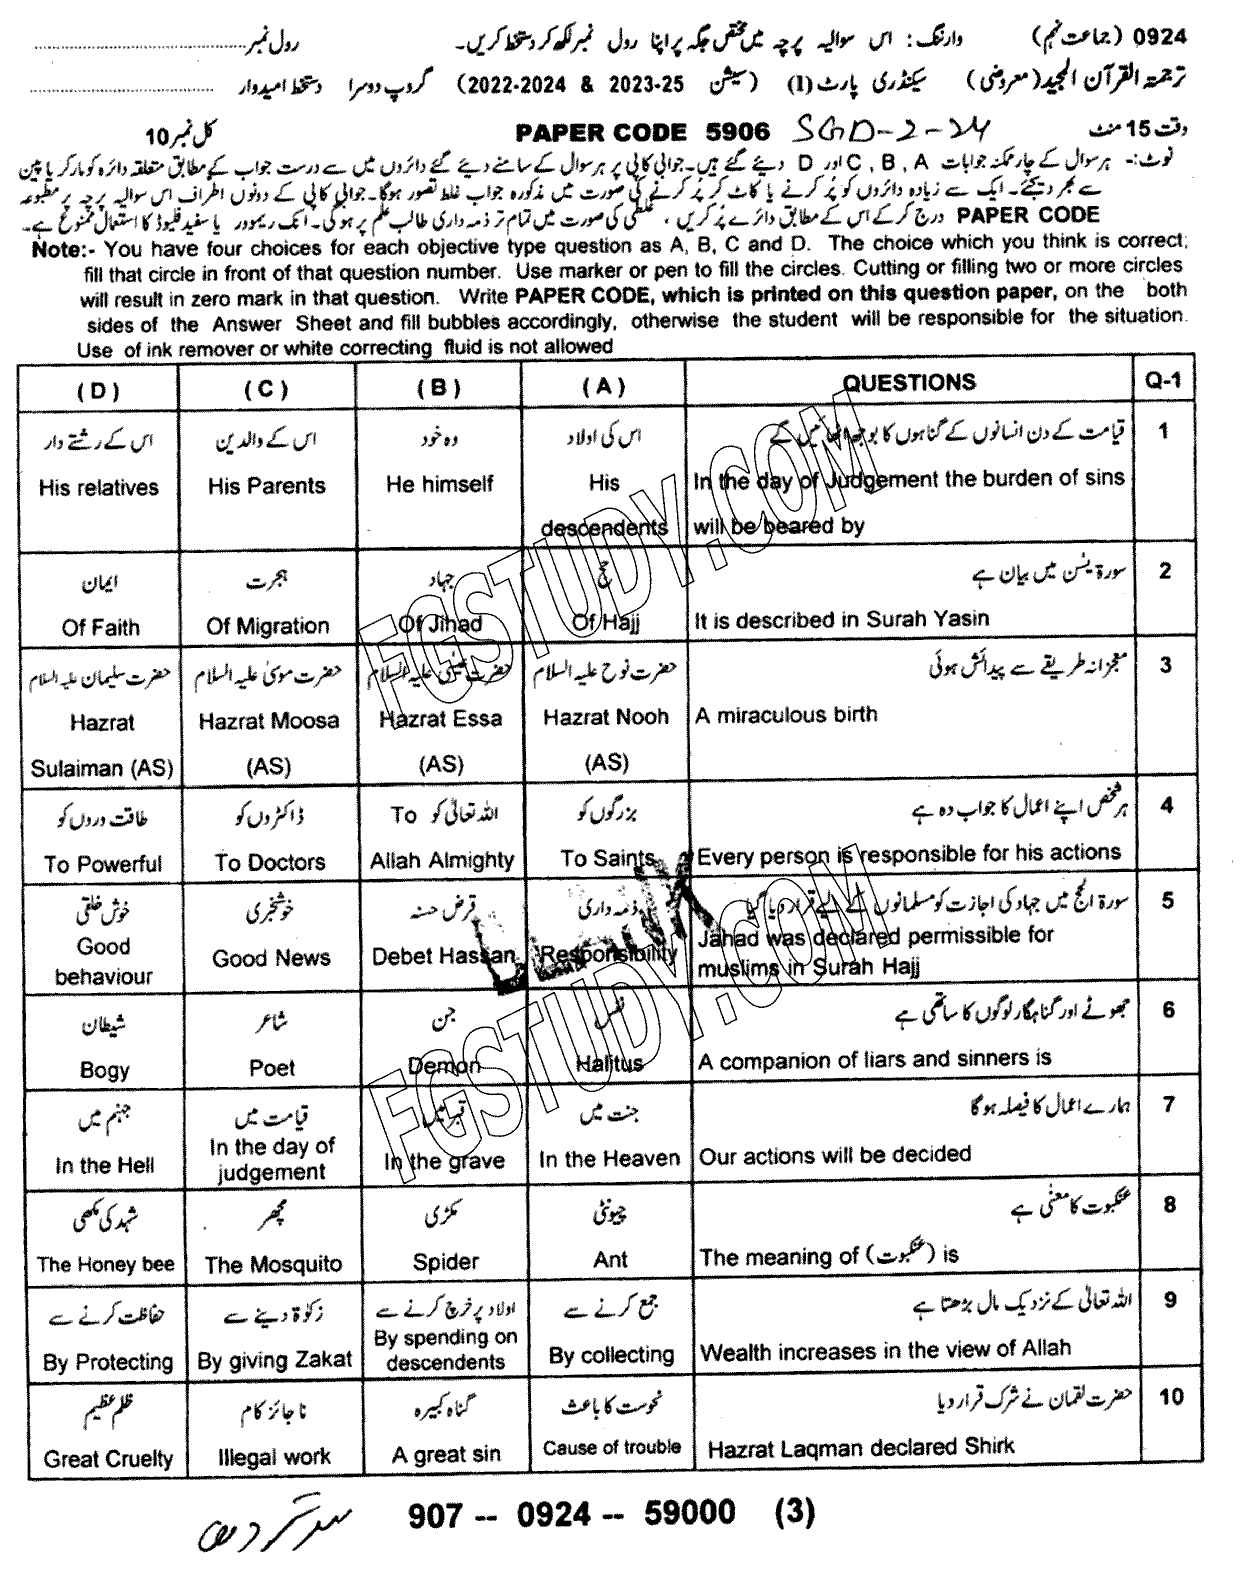 0924 (جماعت نہم) وارننگ: اس سوالیہ پرچہ میں مختص جگہ پر اپنا رول نمبر لکھ کر دستخط کریں۔ رول نمبر
ترجمۃ القرآن المجید (معروضی) سیکنڈری پارٹ (I) (سیشن 2023-25 & 2022-2024) گروپ دوسرا دستخط امیدوار
وقت 15 منٹ PAPER CODE 5906 SGD-2-24 کل نمبر 10
نوٹ:- ہر سوال کے چار ممکنہ جوابات A ، B ، C اور D دیئے گئے ہیں۔ جوابی کاپی پر ہر سوال کے سامنے دیئے گئے دائروں میں سے درست جواب کے مطابق متعلقہ دائرہ کو مارکر یا پین
سے بھر دیجئے۔ ایک سے زیادہ دائروں کو پُر کرنے یا کاٹ کر پُر کرنے کی صورت میں مذکورہ جواب غلط تصور ہوگا۔ جوابی کاپی کے دونوں اطراف اس سوالیہ پرچہ پر مطبوعہ
PAPER CODE درج کر کے اس کے مطابق دائرے پُر کریں، غلطی کی صورت میں تمام تر ذمہ داری طالب علم پر ہوگی۔ انک ریموور یا سفید فلیوڈ کا استعمال ممنوع ہے۔
Note:- You have four choices for each objective type question as A, B, C and D. The choice which you think is correct;
fill that circle in front of that question number. Use marker or pen to fill the circles. Cutting or filling two or more circles
will result in zero mark in that question. Write PAPER CODE, which is printed on this question paper, on the both
sides of the Answer Sheet and fill bubbles accordingly, otherwise the student will be responsible for the situation.
Use of ink remover or white correcting fluid is not allowed
(D) (C) (B) (A) QUESTIONS Q-1
اس کے رشتے دار اس کے والدین وہ خود اس کی اولاد قیامت کے دن انسانوں کے گناہوں کا بوجھ اٹھائیں گے 1
His relatives His Parents He himself His In the day of Judgement the burden of sins
descendents will be beared by
ایمان ہجرت جہاد حج سورۃ یٰسن میں بیان ہے 2
Of Faith Of Migration Of Jihad Of Hajj It is described in Surah Yasin
حضرت سلیمان علیہ السلام حضرت موسیٰ علیہ السلام حضرت عیسٰی علیہ السلام حضرت نوح علیہ السلام معجزانہ طریقے سے پیدائش ہوئی 3
Hazrat Hazrat Moosa Hazrat Essa Hazrat Nooh A miraculous birth
Sulaiman (AS) (AS) (AS) (AS)
طاقت وروں کو ڈاکٹروں کو اللہ تعالیٰ کو To بزرگوں کو ہر شخص اپنے اعمال کا جواب دہ ہے 4
To Powerful To Doctors Allah Almighty To Saints Every person is responsible for his actions
خوش خلقی خوشخبری قرض حسنہ ذمہ داری سورۃ الحج میں جہاد کی اجازت کو مسلمانوں کے لیے قرار دیا گیا 5
Good behaviour Good News Debet Hassan Responsibility Jahad was declared permissible for
muslims in Surah Hajj
شیطان شاعر جن نفس جھوٹے اور گناہگار لوگوں کا ساتھی ہے 6
Bogy Poet Demon Halitus A companion of liars and sinners is
جہنم میں قیامت میں قبر میں جنت میں ہمارے اعمال کا فیصلہ ہوگا 7
In the Hell In the day of judgement In the grave In the Heaven Our actions will be decided
شہد کی مکھی مچھر مکڑی چیونٹی عنکبوت کا معنیٰ ہے 8
The Honey bee The Mosquito Spider Ant The meaning of (عنکبوت) is
حفاظت کرنے سے زکوٰۃ دینے سے اولاد پر خرچ کرنے سے جمع کرنے سے اللہ تعالیٰ کے نزدیک مال بڑھتا ہے 9
By Protecting By giving Zakat By spending on descendents By collecting Wealth increases in the view of Allah
ظلم عظیم ناجائز کام گناہ کبیرہ نحوست کا باعث حضرت لقمان نے شرک قرار دیا 10
Great Cruelty Illegal work A great sin Cause of trouble Hazrat Laqman declared Shirk
FGSTUDY.COM
FGSTUDY.COM
907 -- 0924 -- 59000 (3)